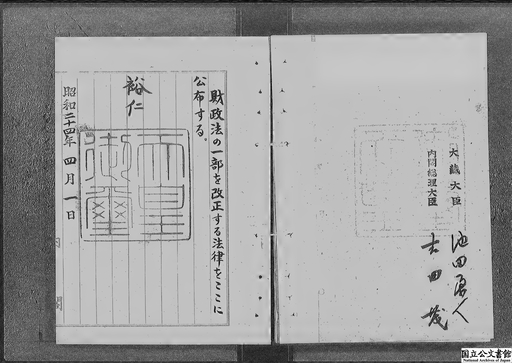 財政法の一部を改正する法律をここに
公布する。
裕仁
天皇御璽
昭和二十四年四月一日
大蔵大臣 池田勇人
内閣総理大臣 吉田茂
国立公文書館
National Archives of Japan